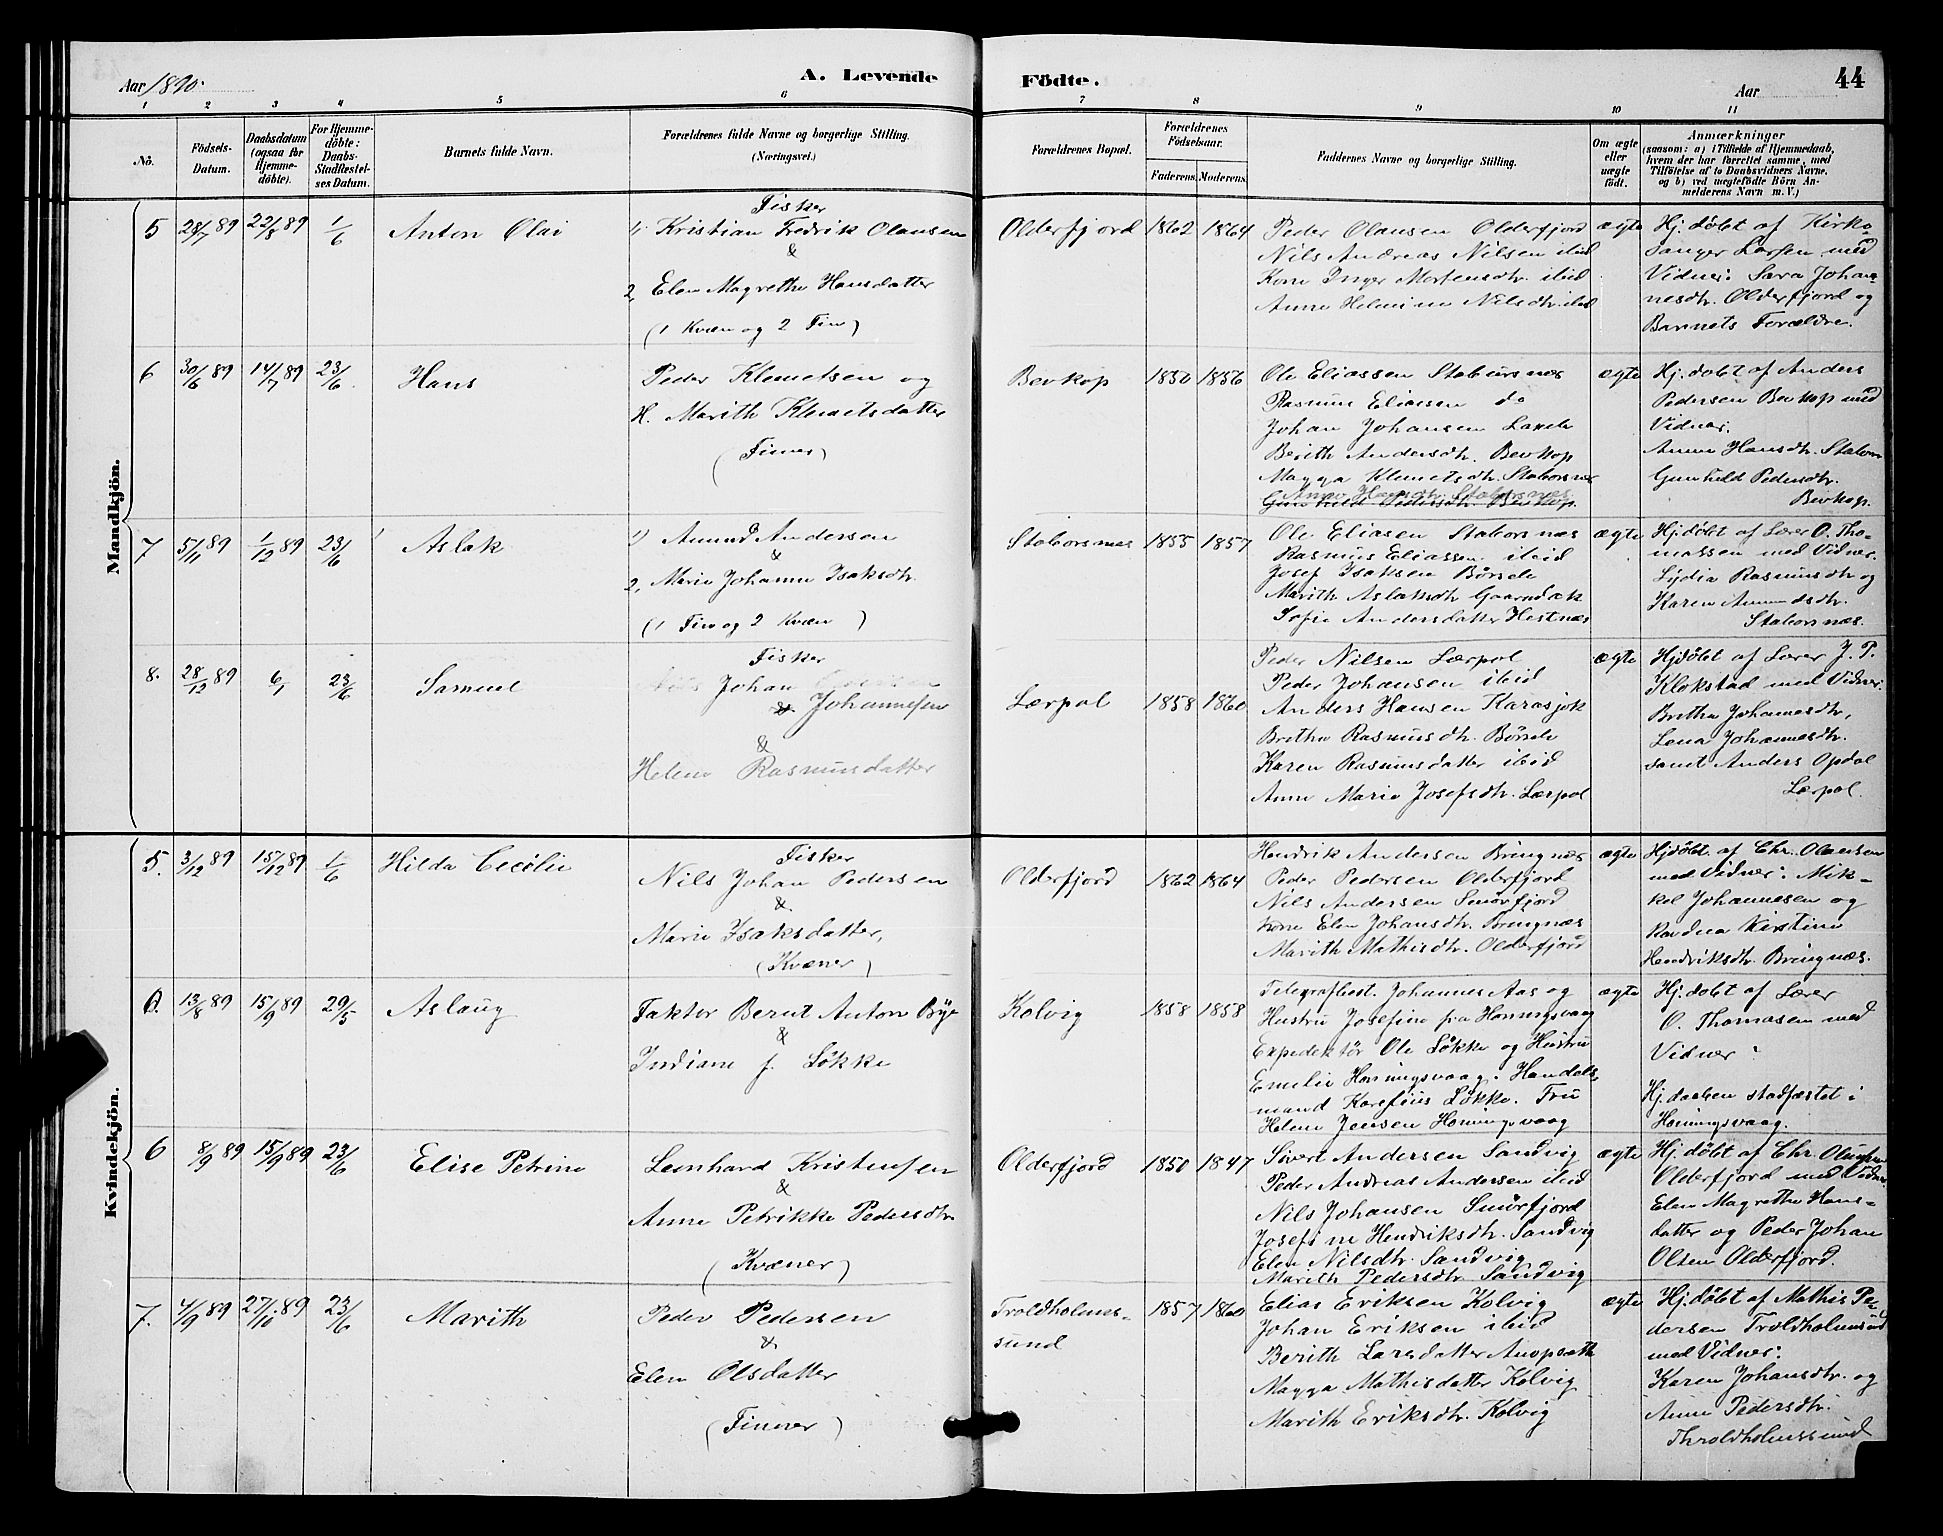 Aar 1890.
A. Levende
Födte.
Aar
44
1 2 3 4 5 6 7 8 9 10 11
No.
Födsels-
Datum.
Daabsdatum
(ogsaa for
Hjemme-
döbte).
For Hjemme-
döbte:
Daabs-
Stadfæstel-
ses Datum.
Barnets fulde Navn.
Forældrenes fulde Navne og borgerlige Stilling.
(Næringsvei.)
Forældrenes Bopæl.
Forældrenes
Födselsaar.
Faderens. Moderens.
Faddernes Navne og borgerlige Stilling.
Om ægte
eller
uægte
födt.
Anmærkninger
(saasom: a) i Tilfælde af Hjemmedaab,
hvem der har forrettet samme, med
Tilföielse af to Daabsvidners Navne,
og b) ved uægtefödte Börn An-
melderens Navn m. V.)
Mandkjön.
5 28/7 89 22/8 89 1/6 Anton Olai
Fisker
1, Kristian Fredrik Olausen
&
2, Elen Magrethe Hansdatter
(1 Kvæn og 2 Fin)
Olderfjord 1862 1864
Peder Olausen Olderfjord
Nils Andreas Nilsen ibid
Kone Inger Mortensdtr. ibid
Anne Helmine Nilsdtr. ibid
ægte
Hj. döbt af Kirke-
sanger Larsen med
Vidner: Sara Johan-
nesdtr. Olderfjord og
Barnets Forældre.
6 30/6 89 14/7 89 23/6 Hans
Peder Klemetsen og
H. Marith Klemetsdatter
(Finner)
Bevkop 1850 1856
Ole Eliassen Stabursnæs
Rasmus Eliasen do
Johan Johansen Lande
Berith Andersdtr. Bevkop
Magga Klemetsdtr. Staborsnæs
Anne Hansdtr. Staborsnæs
Gunhild Pedersdtr Bevkop.
ægte
Hj. dobt af Anders
Pedersen Bevkop med
Vidner.
Anne Hansdtr. Stabors
Gunhild Pedersdtr.
Bevkop.
7 5/11 89 1/12 89 23/6 Aslak
1) Amund Andersen
&
2, Marie Johanne Isaksdtr.
(1 Fin og 2 Kvæn)
Staborsnæs 1855 1857
Ole Eliasen Staborsnæs
Rasmus Eliassen ibid
Josef Isaksen Börsele
Marith Aslaksdtr Gaarndak
Sofie Andersdatter Hestnæs
ægte
Hj. döbt af Lærer O. Tho-
massen med Vidner.
Lydia Rasmusdtr og
Karen Amundsdtr.
Staborsnæs.
8. 28/12 89 6/1 23/6 Samuel
Fisker
Nils Johan
& Johannesen
&
Helene Rasmusdatter
Lærpol 1858 1860
Peder Nilsen Lærpol
Peder Johansen ibid
Anders Hansen Karasjok
Brithe Rasmusdtr. Börsele
Karen Rasmusdatter ibid
Anne Marie Josefsdtr. Lærpol
ægte
Hjdöbt af Lærer J. P.
Klokstad med Vidner:
Brithe Johannesdtr,
Lena Johannesdtr.
samt Anders Opdal
Lærpol.
Kvindekjön.
5. 3/12 89 15/12 89 1/6 Hilda Cecilie
Fisker
Nils Johan Pedersen
&
Marie Isaksdatter,
(Kvæner)
Olderfjord 1862 1864
Hendrik Andersen Bringnæs
Peder Pedersen Olderfjord
Nils Andersen Smörfjord
Kone Elen Johansdtr. Bringnæs
Marith Mathisdtr. Olderfjord
ægte
Hjdöbt af Chr. Olaussen
med Vidner: Mik-
kel Johannesen og
Kirstine
Hendriksdtr. Bringnæs.
13/8 89 15/9 89 29/5 Aslaug
Faktor Bernt Anton Bye
&
Indiane f. Lökke
Kolvig 1858 1858
Telegrafbest. Johannes Aas og
Hustru Josefine fra Honningsvaag
Expeditör Ole Lökke og Hustru
Emelie Honningsvaag. Handels-
mand Lökke. Fru
Helene Jensen Honingsvaag
ægte
Hj. dobt af Lærer
O. Thomasen med
Vidner:
Hj. daaben stadfæstet i
Honingsvaag.
6 8/9 89 15/9 89 23/6 Elise Petrine
Leonhard Kristensen
&
Anne Petrikke Pedersdtr.
(Kvæner)
Olderfjord 1850 1847
Sivert Andersen Sandvig
Peder Andreas Andersen ibid
Nils Johansen Smörfjord
Josefine Hendriksdtr. Sandvig
Elen Nilsdtr. Sandvig
Marith Pedersdtr. Sandvig
ægte
Hj. döbt af Chr. Olausen
Olderfjord med Vidner
Elen Magrethe Hans-
datter og Peder Johan
Olsen Olderfjord.
7. 4/9 89 27/10 89 23/6 Marith
Peder Pedersen
&
Elen Olsdatter
(Finner)
Troldholms-
sund
1857 1860
Elias Eriksen Kolvig
Johan Eriksen ibid
Berith Larsdatter
Magga Mathisdatter Kolvig
Marith Eriksdtr. Kolvig
ægte
Hj. döbt af Mathis Pe-
dersen Troldholmsund
med Vidner:
Karen Johansdtr. og
Anne Pedersdtr.
Throldholmssund